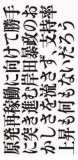 原発再稼働に向けて勝手
に突き進む岸田暴政のお
かしさを流さず 支持率
上昇も何もないだろう